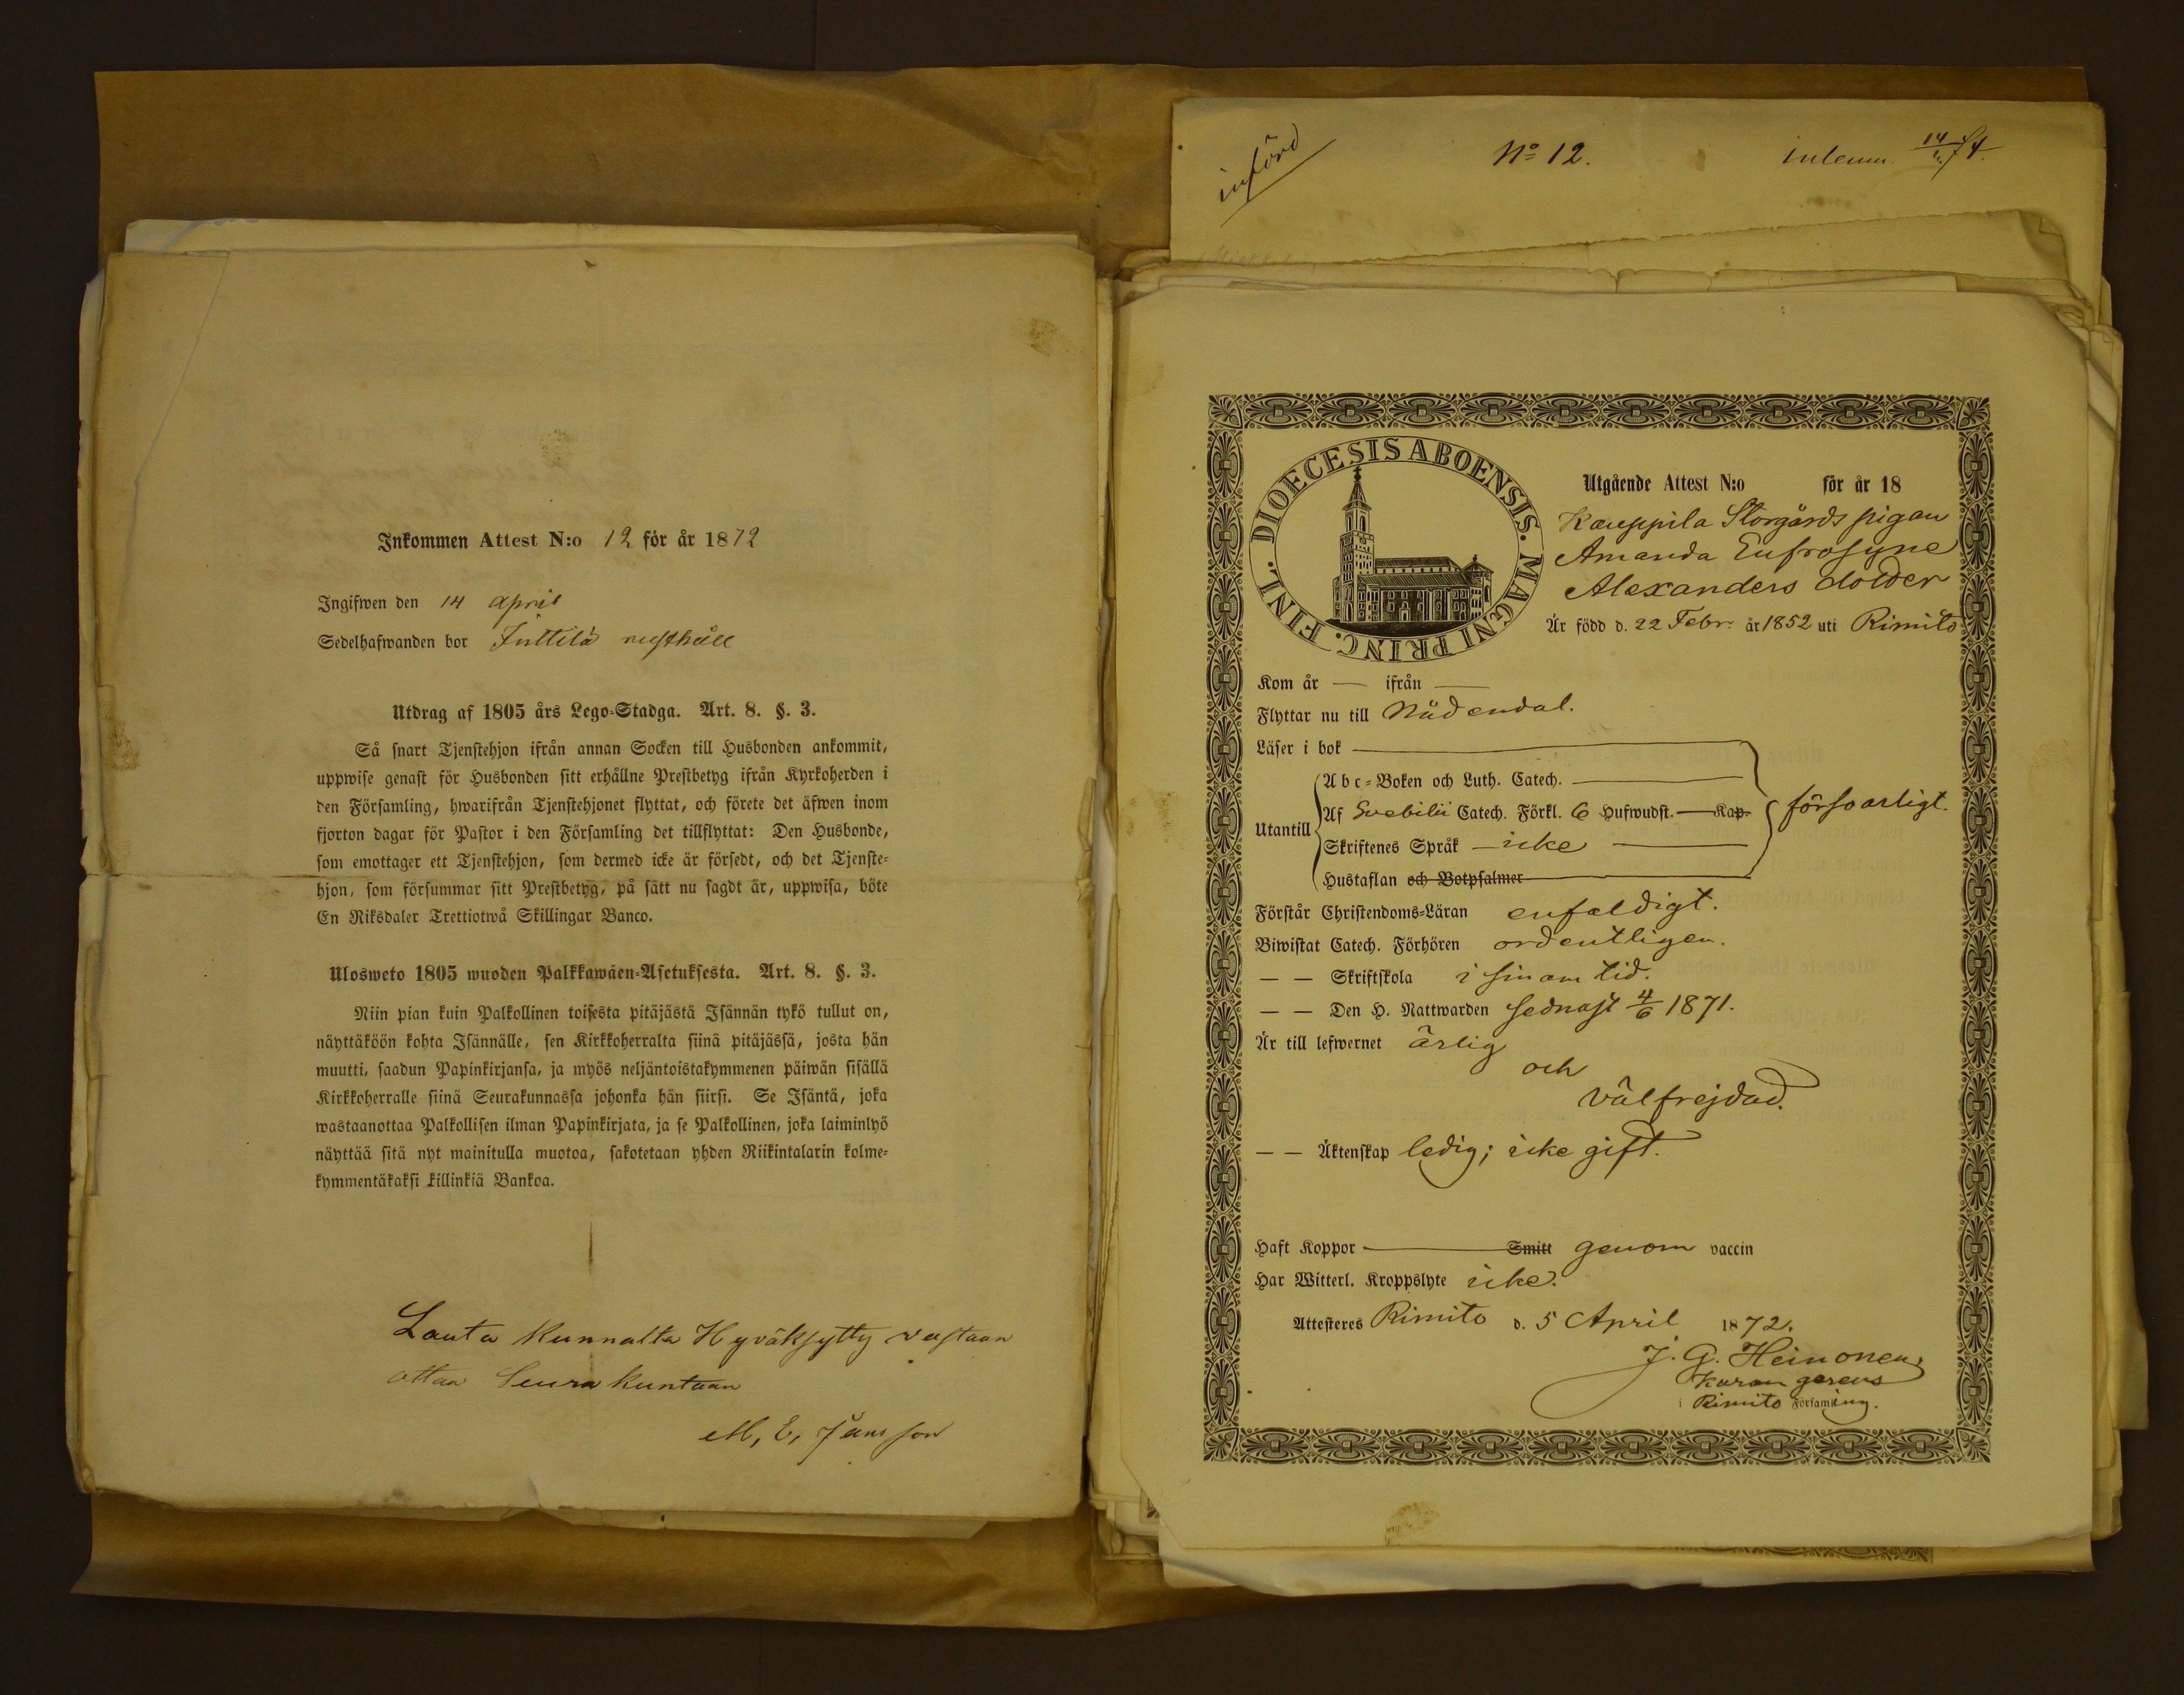 Inkommen Attest N:o 12 för år 1872
Ingifwen den 14 April
Sedelhafwanden bor Juttila rusthåll
Utdrag af 1805 års Lego-Stadga. Art. 8. §. 3.
Så snart Tjenstehjon ifrån annan Socken till Husbonden ankommit,
uppwise genast för Husbonden sitt erhållne Prestbetyg ifrån Kyrkoherden i
den Församling, hwarifrån Tjenstehjonet flyttat, och förete det äfwen inom
fjorton dagar för Pastor i den Församling det tillflyttat: Den Husbonde,
som emottager ett Tjenstehjon, som dermed icke är försedt, och det Tjenste-
hjon, som försummar sitt Prestbetyg, på sätt nu sagdt är, uppwisa, böte
En Riksdaler Trettiotwå Skillingar Banco.
Ulosweto 1805 wuoden Palkkawäen-Asetuksesta. Art. 8. §. 3.
Niin pian kuin Palkollinen toisesta pitäjästä Isännän tykö tullut on,
näyttäköön kohta Isännälle, sen Kirkkoherralta siinä pitäjässä, josta hän
muutti, saadun Papinkirjansa, ja myös neljäntoistakymmenen päiwän sisällä
Kirkkoherralle siinä Seurakunnassa johonka hän siirsi. Se Isäntä, joka
wastaanottaa Palkollisen ilman Papinkirjata, ja se Palkollinen, joka laiminlyö
näyttää sitä nyt mainitulla muotoa, sakotetaan yhden Riikintalarin kolme-
kymmentäkaksi killinkiä Bankoa.
Lauta kunnalta Hyväksytty vastaan
ottaa Seura kuntaan
M, E, Jansson
införd
No 12.
inlemn. 14/4 74.
DIOECESIS ABOENSIS. MAGNI PRINC. FINL.
Utgående Attest N:o för år 18
Kauppila Storgårds pigan
Amanda Eufrosyne
Alexanders dotter
Är född d. 22 Febr. år 1852 uti Rimito
Kom år — ifrån —
Flyttar nu till Nådendal.
Läser i bok —
Abc-Boken och Luth. Catech. —
Utantill Af Svebilii Catech. Förkl. 6 Hufwudst. — Kap. försvarligt.
Skriftenes Språk — icke —
Hustaflan och Botpsalmer
Förstår Christendoms-Läran enfaldigt.
Biwistat Catech. Förhören ordentligen.
— — Skriftskola i sinom tid.
— — Den H. Nattwarden sednast 4/6 1871.
Är till lefwernet ärlig
och
välfrejdad.
— — Äktenskap ledig; icke gift.
Haft Koppor — Smitt genom vaccin
Har Witterl. Kroppslyte icke.
Attesteres Rimito d. 5 April 1872.
J. G. Heinonen
i Rimito Församling.